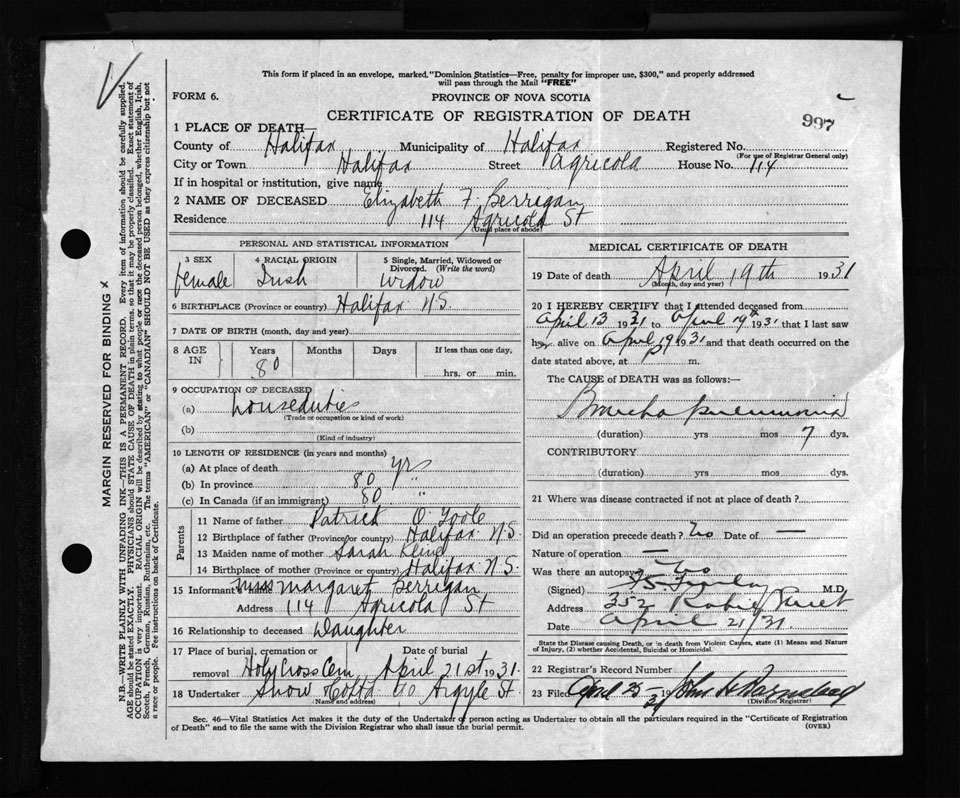 This form if placed in an envelope, marked, "Dominion Statistics—Free, penalty for improper use, $300," and properly addressed
will pass through the Mail "FREE"
FORM 6.
PROVINCE OF NOVA SCOTIA
CERTIFICATE OF REGISTRATION OF DEATH
997
1 PLACE OF DEATH—
County of Halifax Municipality of Halifax Registered No.
(For use of Registrar General only)
City or Town Halifax Street Agricola House No. 114
If in hospital or institution, give name
2 NAME OF DECEASED Elizabeth F. Berrigan
Residence 114 Agricola St
(Usual place of abode)
PERSONAL AND STATISTICAL INFORMATION
3 SEX 4 RACIAL ORIGIN 5 Single, Married, Widowed or Divorced. (Write the word)
female Irish Widow
6 BIRTHPLACE (Province or country) Halifax N.S.
7 DATE OF BIRTH (month, day and year)
8 AGE IN Years Months Days If less than one day,
80 hrs. or min.
9 OCCUPATION OF DECEASED
(a) houseduties
(Trade or occupation or kind of work)
(b)
(Kind of industry)
10 LENGTH OF RESIDENCE (in years and months)
(a) At place of death yrs
(b) In province 80 "
(c) In Canada (if an immigrant) 80 "
Parents
11 Name of father Patrick O'Toole
12 Birthplace of father (Province or country) Halifax N.S.
13 Maiden name of mother Sarah
14 Birthplace of mother (Province or country) Halifax N.S.
15 Informant's name Miss Margaret Berrigan
Address 114 Agricola St
16 Relationship to deceased Daughter
17 Place of burial, cremation or removal Date of burial
Holy Cross Cem April 21st 1931
18 Undertaker Snow Argyle St
(Name and address)
MEDICAL CERTIFICATE OF DEATH
19 Date of death April 19th 1931
(Month, day and year)
20 I HEREBY CERTIFY that I attended deceased from
April 13 1931 to April 19th 1931 that I last saw
h alive on April 19 1931 and that death occurred on the
date stated above, at m.
The CAUSE of DEATH was as follows:—
Broncho pneumonia
(duration) yrs mos 7 dys.
CONTRIBUTORY
(duration) yrs mos dys.
21 Where was disease contracted if not at place of death?
Did an operation precede death? No Date of —
Nature of operation —
Was there an autopsy No
(Signed) M.D.
Address 352 Robie Street
Date April 21/31
State the Disease causing Death, or in death from Violent Causes, state (1) Means and Nature
of Injury, (2) whether Accidental, Suicidal or Homicidal.
22 Registrar's Record Number
23 Filed April 25 1931 John
(Division Registrar)
Sec. 46—Vital Statistics Act makes it the duty of the Undertaker or person acting as Undertaker to obtain all the particulars required in the "Certificate of Registration
of Death" and to file the same with the Division Registrar who shall issue the burial permit. (OVER)
MARGIN RESERVED FOR BINDING
N.B.—WRITE PLAINLY WITH UNFADING INK—THIS IS A PERMANENT RECORD. Every item of information should be carefully supplied.
AGE should be stated EXACTLY. PHYSICIANS should STATE CAUSE OF DEATH in plain terms, so that it may be properly classified. Exact statement of
OCCUPATION is very important. RACIAL ORIGIN will be described by stating to what people or race the deceased person belonged, whether English, Irish,
Scotch, French, German, Russian, Ruthenian, etc. The terms "AMERICAN" or "CANADIAN" SHOULD NOT BE USED as they express citizenship but not
a race or people. Fee instructions on back of Certificate.